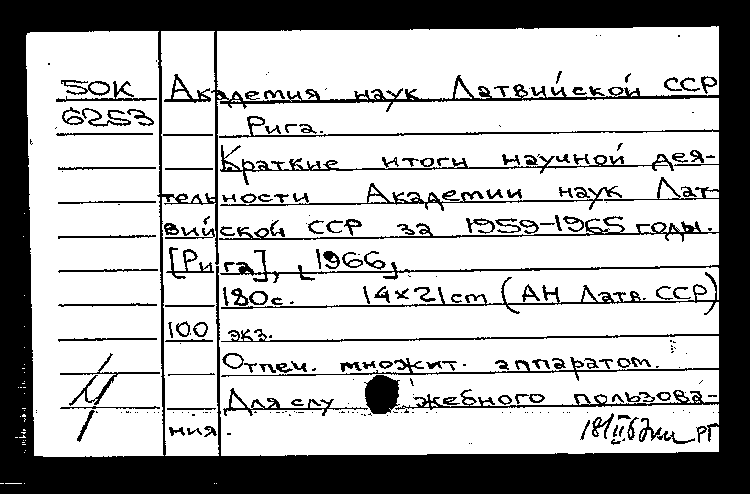 50К Академия наук Латвийской ССР
6253 Рига.
Краткие итоги научной дея-
тельности Академии наук Лат-
вийской ССР за 1959-1965 годы.
[Рига], [1966].
180с. 14×21cm (АН Латв. ССР)
100 экз.
Отпеч. множит. аппаратом.
Для служебного пользова-
ния.
РГ